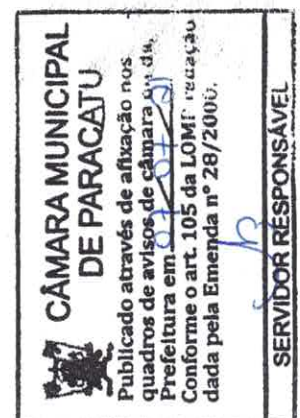 CÂMARA MUNICIPAL
DE PARACATU
Publicado através de afixação nos
quadros de avisos de câmara ou da,
Prefeitura em
Conforme o art. 105 da LOMP redação
dada pela Emenda nº 28/2000.
SERVIDOR RESPONSÁVEL